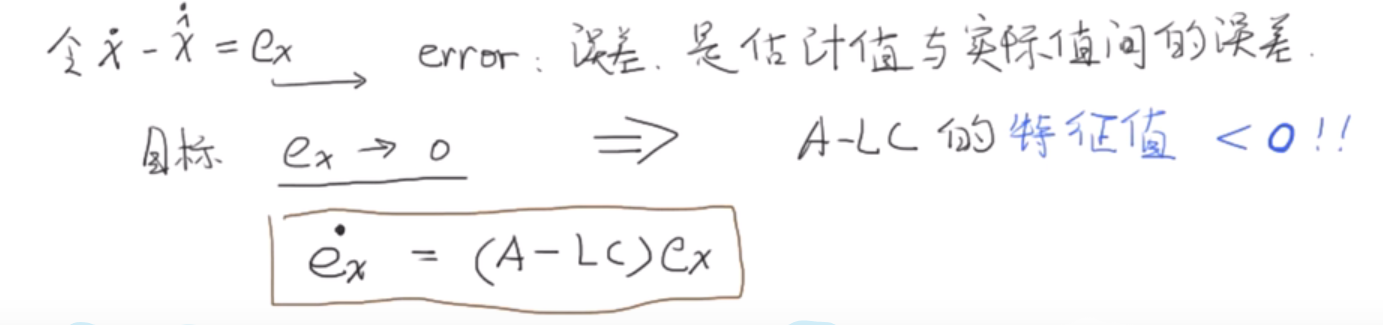 令 ẋ - x̂̇ = eₓ → error: 误差. 是估计值与实际值间的误差.
目标 eₓ → 0 ⇒ A-LC 的特征值 < 0!!
ėₓ = (A-LC)eₓ